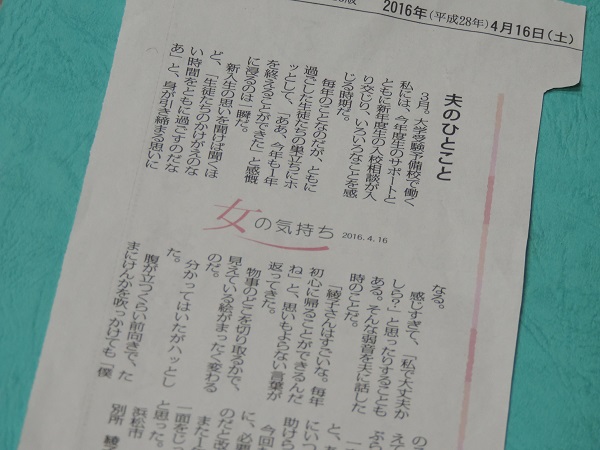 2016年(平成28年)4月16日(土)
夫のひとこと
3月。大学受験予備校で働く
私には、今年度生のサポートと
ともに新年度生の入校相談が入
り交じり、いろいろなことを感
じる時期だ。
毎年のことなのだが、ともに
過ごした生徒たちの巣立ちにホ
ッとして、「ああ、今年も1年
を終えることができた」と感慨
に浸るのは一瞬だ。
新入生の思いを聞けば聞くほ
ど、「生徒たちのかけがえのな
い時間をともに過ごすのだな
あ」と、身が引き締まる思いに
女の気持ち
2016.4.16
なる。
感じすぎて、「私で大丈夫か
しら?」と思ったりすることも
ある。そんな弱音を夫に話した
時のことだ。
「綾子さんはすごいな。毎年
初心に帰ることができるんだ
ね」と、思いもよらない言葉が
返ってきた。
物事のどこを切り取るかで、
見えている絵がまったく変わる
のだ。
分かってはいたがハッとし
た。
腹が立つくらい前向きで、た
まにけんかを吹っかけても「僕
のこ
えて
ぶら
と、
にいつ
助けら
今回
に、必要
のだと改
また一
一面をじっ
と思った。
浜松市
別所 綾